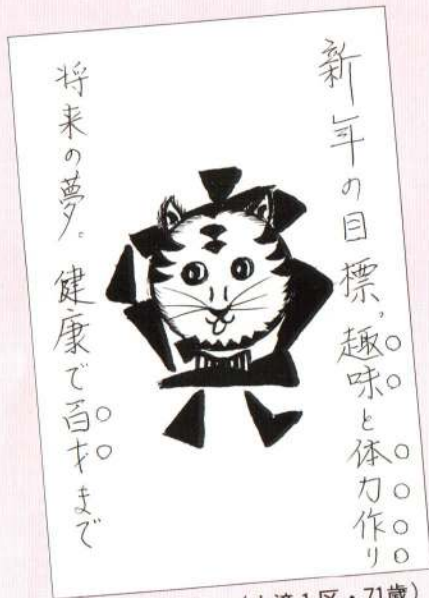 新年の目標。趣味と体力作り
将来の夢。健康で百才まで
1区・71歳）